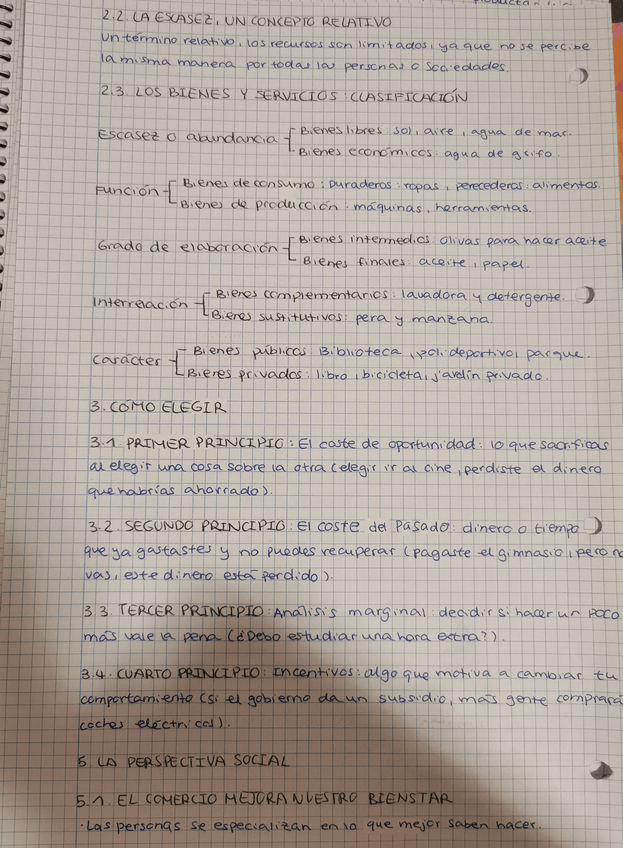 2.2. LA ESCASEZ, UN CONCEPTO RELATIVO
un término relativo, los recursos son limitados, ya que no se percibe
la misma manera por todas las personas o sociedades.
2.3. LOS BIENES Y SERVICIOS: CLASIFICACIÓN
Escasez o abundancia
Bienes libres: sol, aire, agua de mar.
Bienes económicos: agua de grifo.
Función
Bienes de consumo: Duraderos: ropas, perecederos: alimentos.
Bienes de producción: máquinas, herramientas.
Grado de elaboración
Bienes intermedios: olivas para hacer aceite
Bienes finales: aceite, papel.
Interrelación
Bienes complementarios: lavadora y detergente.
Bienes sustitutivos: pera y manzana.
carácter
Bienes públicos: Biblioteca, polideportivo, parque.
Bienes privados: libro, bicicleta, jardín privado.
3. COMO ELEGIR
3.1. PRIMER PRINCIPIO: El coste de oportunidad: lo que sacrificas
al elegir una cosa sobre la otra (elegir ir al cine, perdiste el dinero
que habrías ahorrado).
3.2. SEGUNDO PRINCIPIO: El coste del Pasado: dinero o tiempo
que ya gastastes y no puedes recuperar (pagaste el gimnasio, pero n
vas, este dinero está perdido).
3.3. TERCER PRINCIPIO: Análisis marginal: decidir si hacer un poco
más vale la pena (¿Debo estudiar una hora extra?).
3.4. CUARTO PRINCIPIO: Incentivos: algo que motiva a cambiar tu
comportamiento (si el gobierno da un subsidio, más gente comprará
coches eléctricos).
5 LA PERSPECTIVA SOCIAL
5.1. EL COMERCIO MEJORA NUESTRO BIENSTAR
· Las personas se especializan en lo que mejor saben hacer.